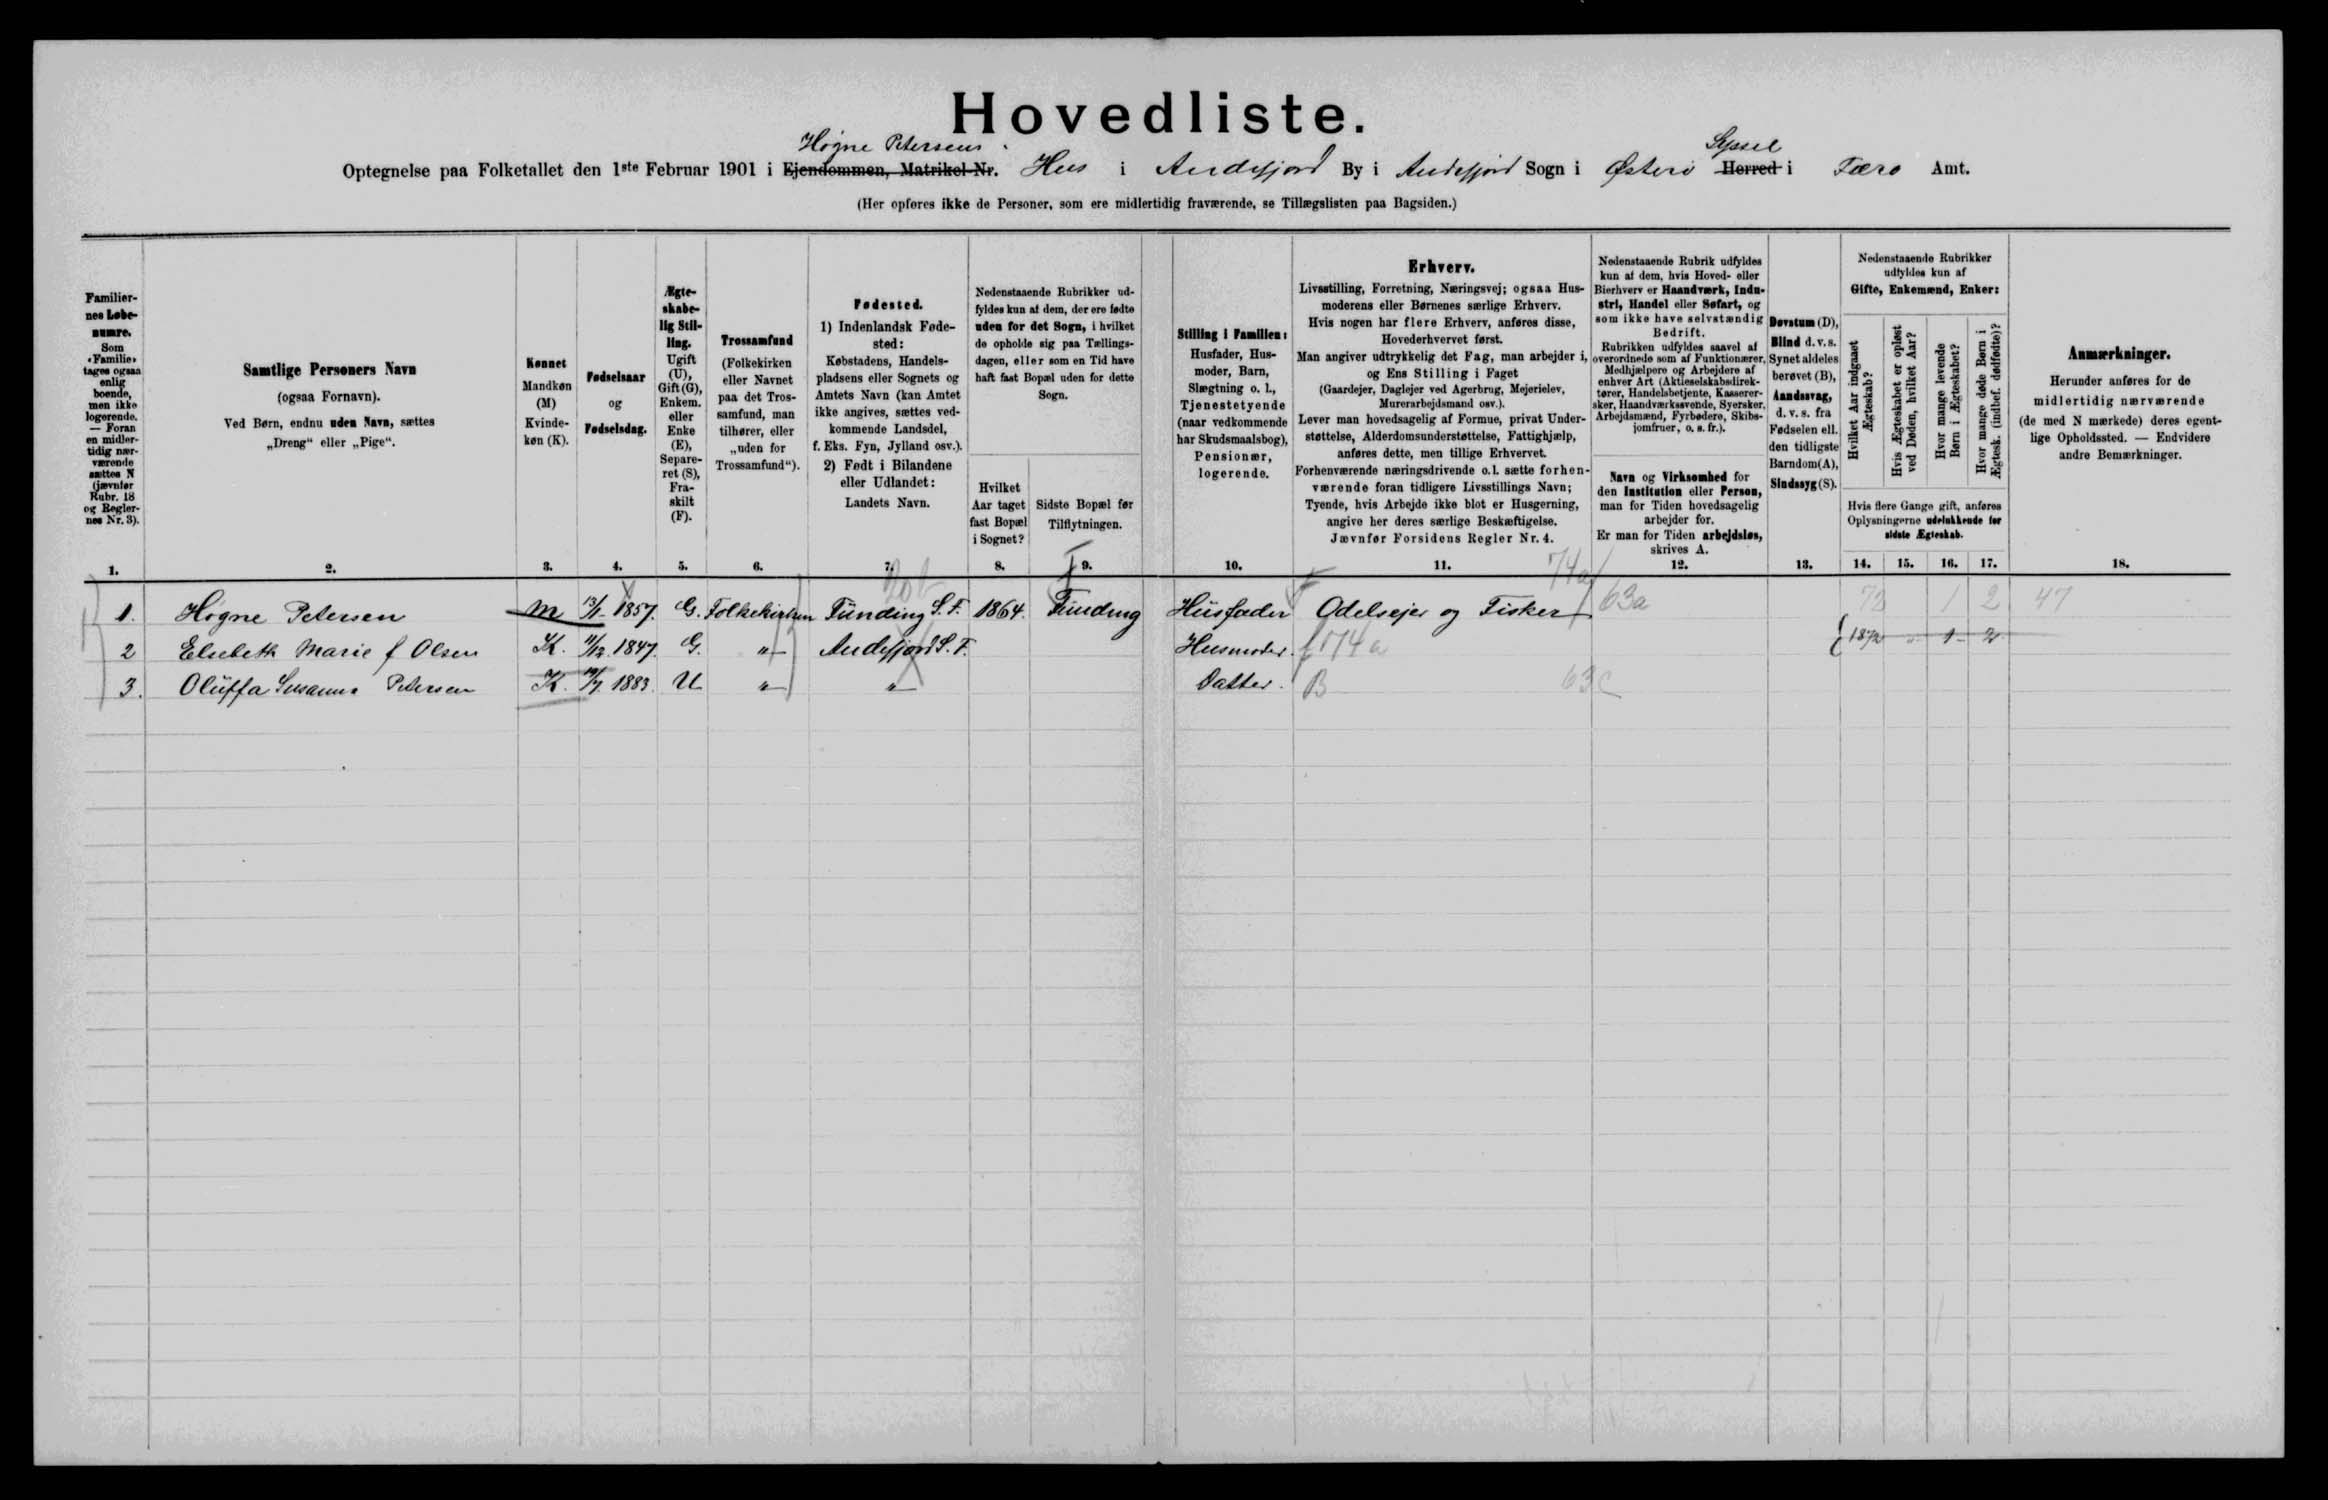 Hovedliste.
Høgne Petersens Syssel
Optegnelse paa Folketallet den 1ste Februar 1901 i Ejendommen, Matrikel-Nr. Hus i Andefjord By i Andefjord Sogn i Østerø Herred i Færø Amt.
(Her opføres ikke de Personer, som ere midlertidig fraværende, se Tillægslisten paa Bagsiden.)
Familier-
nes Løbe-
numre.
Som
«Familie»
tages ogsaa
enlig
boende,
men ikke
logerende.
— Foran
en midler-
tidig nær-
værende
sættes N
(jævnfør
Rubr. 18
og Regler-
nes Nr. 3).
1.
Samtlige Personers Navn
(ogsaa Fornavn).
Ved Børn, endnu uden Navn, sættes
„Dreng“ eller „Pige“.
2.
Kønnet
Mandkøn
(M)
Kvinde-
køn (K).
3.
Fødselsaar
og
Fødselsdag.
4.
Ægte-
skabe-
lig Stil-
ling.
Ugift
(U),
Gift (G),
Enkem.
eller
Enke
(E),
Separe-
ret (S),
Fra-
skilt
(F).
5.
Trossamfund
(Folkekirken
eller Navnet
paa det Tros-
samfund, man
tilhører, eller
„uden for
Trossamfund“).
6.
Fødested.
1) Indenlandsk Føde-
sted:
Købstadens, Handels-
pladsens eller Sognets og
Amtets Navn (kan Amtet
ikke angives, sættes ved-
kommende Landsdel,
f. Eks. Fyn, Jylland osv.).
2) Født i Bilandene
eller Udlandet:
Landets Navn.
7.
Nedenstaaende Rubrikker ud-
fyldes kun af dem, der ere fødte
uden for det Sogn, i hvilket
de opholde sig paa Tællings-
dagen, eller som en Tid have
haft fast Bopæl uden for dette
Sogn.
Hvilket
Aar taget
fast Bopæl
i Sognet?
8.
Sidste Bopæl før
Tilflytningen.
9.
Stilling i Familien:
Husfader, Hus-
moder, Barn,
Slægtning o. l.,
Tjenestetyende
(naar vedkommende
har Skudsmaalsbog),
Pensionær,
logerende.
10.
Erhverv.
Livsstilling, Forretning, Næringsvej; ogsaa Hus-
moderens eller Børnenes særlige Erhverv.
Hvis nogen har flere Erhverv, anføres disse,
Hovederhvervet først.
Man angiver udtrykkelig det Fag, man arbejder i,
og Ens Stilling i Faget
(Gaardejer, Daglejer ved Agerbrug, Mejerielev,
Murerarbejdsmand osv.).
Lever man hovedsagelig af Formue, privat Under-
støttelse, Alderdomsunderstøttelse, Fattighjælp,
anføres dette, men tillige Erhvervet.
Forhenværende næringsdrivende o. l. sætte forhen-
værende foran tidligere Livsstillings Navn;
Tyende, hvis Arbejde ikke blot er Husgerning,
angive her deres særlige Beskæftigelse.
Jævnfør Forsidens Regler Nr. 4.
11.
Nedenstaaende Rubrik udfyldes
kun af dem, hvis Hoved- eller
Bierhverv er Haandværk, Indu-
stri, Handel eller Søfart, og
som ikke have selvstændig
Bedrift.
Rubrikken udfyldes saavel af
overordnede som af Funktionærer,
Medhjælpere og Arbejdere af
enhver Art (Aktieselskabsdirek-
tører, Handelsbetjente, Kasserer-
sker, Haandværkssvende, Syersker,
Arbejdsmænd, Fyrbødere, Skibs-
jomfruer, o. s. fr.).
Navn og Virksomhed for
den Institution eller Person,
man for Tiden hovedsagelig
arbejder for.
Er man for Tiden arbejdsløs,
skrives A.
12.
Døvstum (D),
Blind d. v. s.
Synet aldeles
berøvet (B),
Aandssvag,
d. v. s. fra
Fødselen ell.
den tidligste
Barndom (A),
Sindssyg (S).
13.
Nedenstaaende Rubrikker
udfyldes kun af
Gifte, Enkemænd, Enker:
Hvilket Aar indgaaet
Ægteskab?
Hvis Ægteskabet er opløst
ved Døden, hvilket Aar?
Hvor mange levende
Børn i Ægteskabet?
Hvor mange døde Børn i
Ægtesk. (indbef. dødfødte)?
Hvis flere Gange gift, anføres
Oplysningerne udelukkende for
sidste Ægteskab.
14. 15. 16. 17.
Anmærkninger.
Herunder anføres for de
midlertidig nærværende
(de med N mærkede) deres egent-
lige Opholdssted. — Endvidere
andre Bemærkninger.
18.
74a
1. Høgne Petersen M 13/1 1857. G. Folkekirken Funding S. F. 1864. Funding Husfader Odelsejer og Fisker 63a 72 1 2 47
2 Elsebeth Marie f Olsen K. 11/12 1847. G. " Andefjord S. F. Husmoder. f 74a 1872 " 1 2
3. Oluffa Susanna Petersen K. 19/7 1883. U " " Datter. B 63c